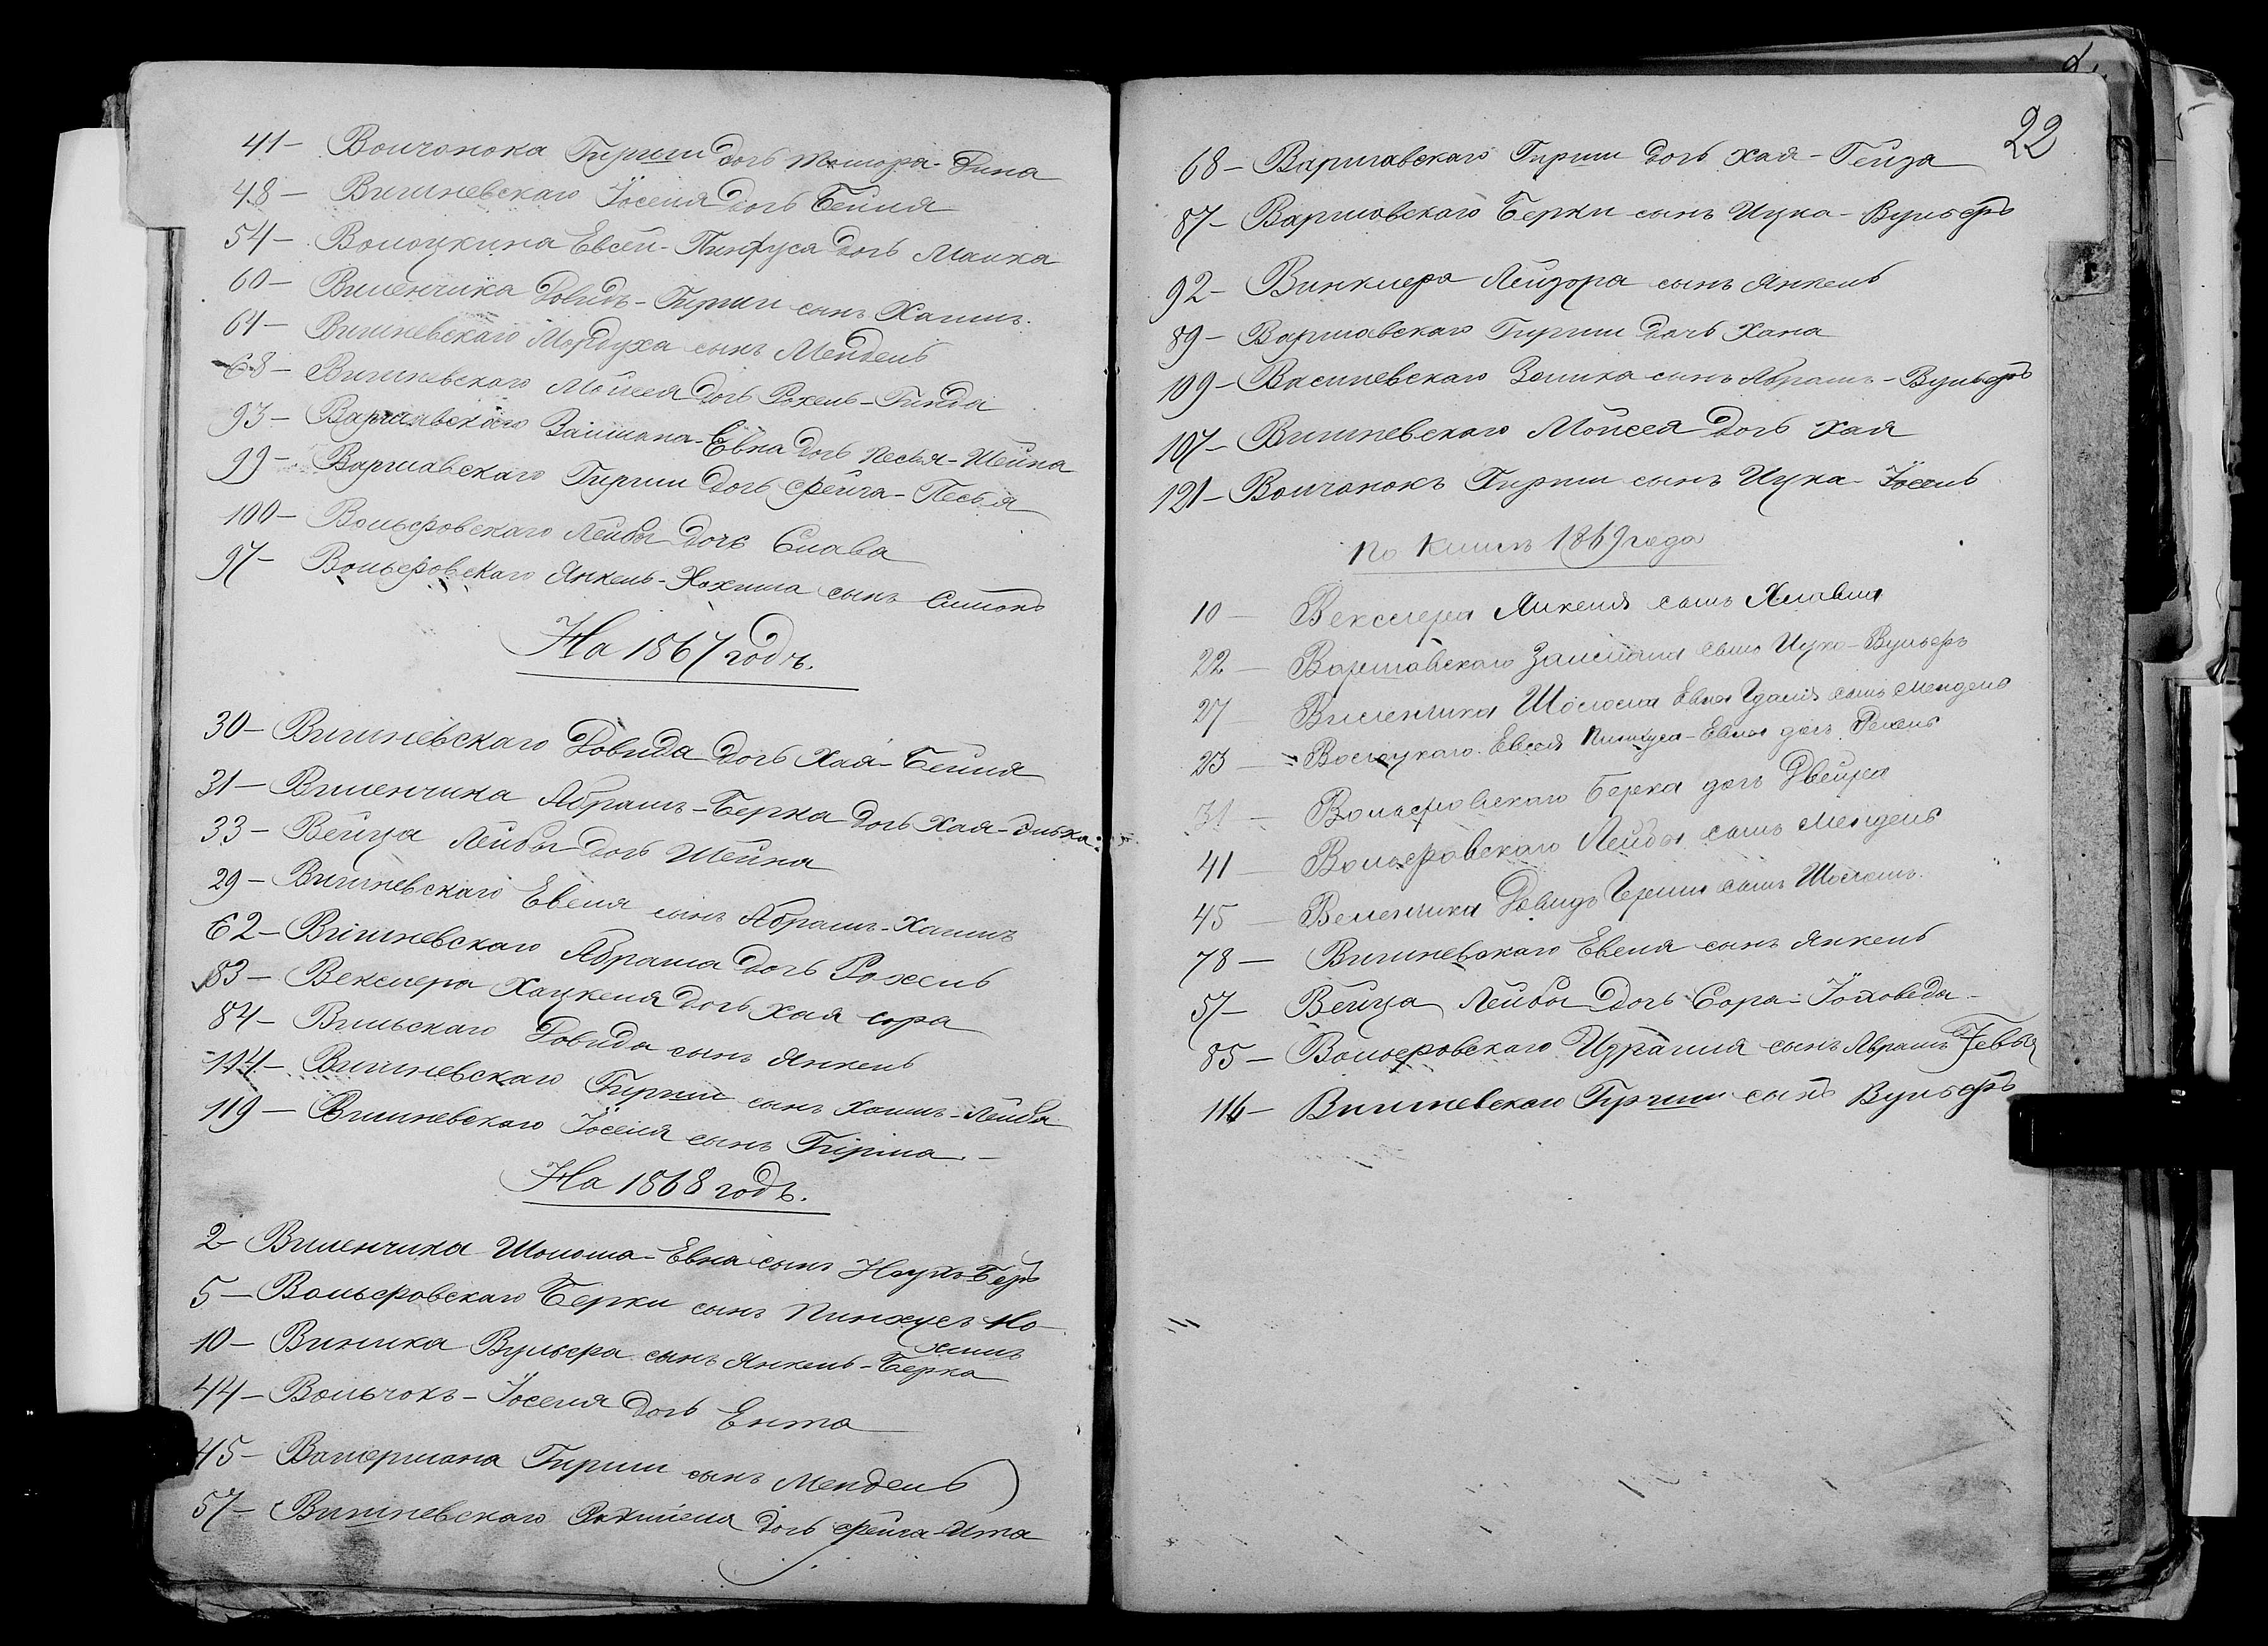 41 – Волчонока Гирши дочь Тамора-Дина
48 – Вишневскаго Іоселя дочь Бейля
54 – Волоцкина Евсей-Пинхуса дочь Малка
60 – Виленчика Довидъ-Гирши сынъ Хаимъ.
61 – Вишневскаго Мордуха сынъ Мендель
68 – Вишневскаго Мойсея дочь Рохель-Гинда
93 – Варшавскаго Залмана-Евна дочь Песья-Шейна
99 – Варшавскаго Гирши дочь Фейга-Песья
100 – Вольфовскаго Лейбы дочь Слава
97 – Вольфовскаго Янкель-Нохима сынъ Симонъ
На 1867 годъ.
30 – Вишневскаго Довида дочь Хая-Бейля
31 – Виленчика Абрамъ-Берка дочь Хая-Элька
33 – Вейца Лейбы дочь Шейна
29 – Вишневскаго Евеля сынъ Абрамъ-Хаимъ
62 – Вишневскаго Абрама дочь Рохель
83 – Векслера Хацкеля дочь Хая Сора
84 – Вильскаго Довида сынъ Янкель
114 – Вишневскаго Гирши сынъ Хаимъ-Лейба
119 – Вишневскаго Іоселя сынъ Гирша –
На 1868 годъ.
2 – Виленчика Шолома-Евна сынъ Наумъ-Беръ
5 – Вольфовскаго Берки сынъ Пинхусъ Но-
химъ
10 – Виника Вульфа сынъ Янкель-Берка
44 – Вольчокъ-Іоселя дочь Ента
45 – Вапермана Гирши сынъ Мендель
57 – Вишневскаго Рахмiеля дочь Фейга-Ита
22
68 – Варшавскаго Гирши дочь Хая-Гейза
87 – Варшавскаго Берки сынъ Ицка-Вульфъ
92 – Винклера Лейзора сынъ Янкель
89 – Варшавскаго Гирши дочь Хана
109 – Василевскаго Зелика сынъ Абрамъ-Вульфъ
107 – Вишневскаго Мойсея дочь Хая
121 – Волчонокъ Гирши сынъ Ицка-Іосель
по книгѣ 1869 года
10 – Векслера Янкеля сынъ
22 – Варшавскаго Залмана сынъ Ицко-Вульфъ
27 – Виленчика Шолома Евна Гдалія сынъ Мендель
23 – Волоцкаго Евсея Пинхуса-Евны дочь
31 – Вольфовскаго Берка дочь Двейра
41 – Вольфовскаго Лейбы сынъ Мендель
45 – Веленчика Довидъ Герши сынъ Шоломъ.
78 – Вишневскаго Евеля сынъ Янкель
57 – Вейца Лейбы дочь Сора-Іоховеда –
85 – Вольфовскаго Израиля сынъ Абрамъ
116 – Вишневскаго Гирши сынъ Вульфъ